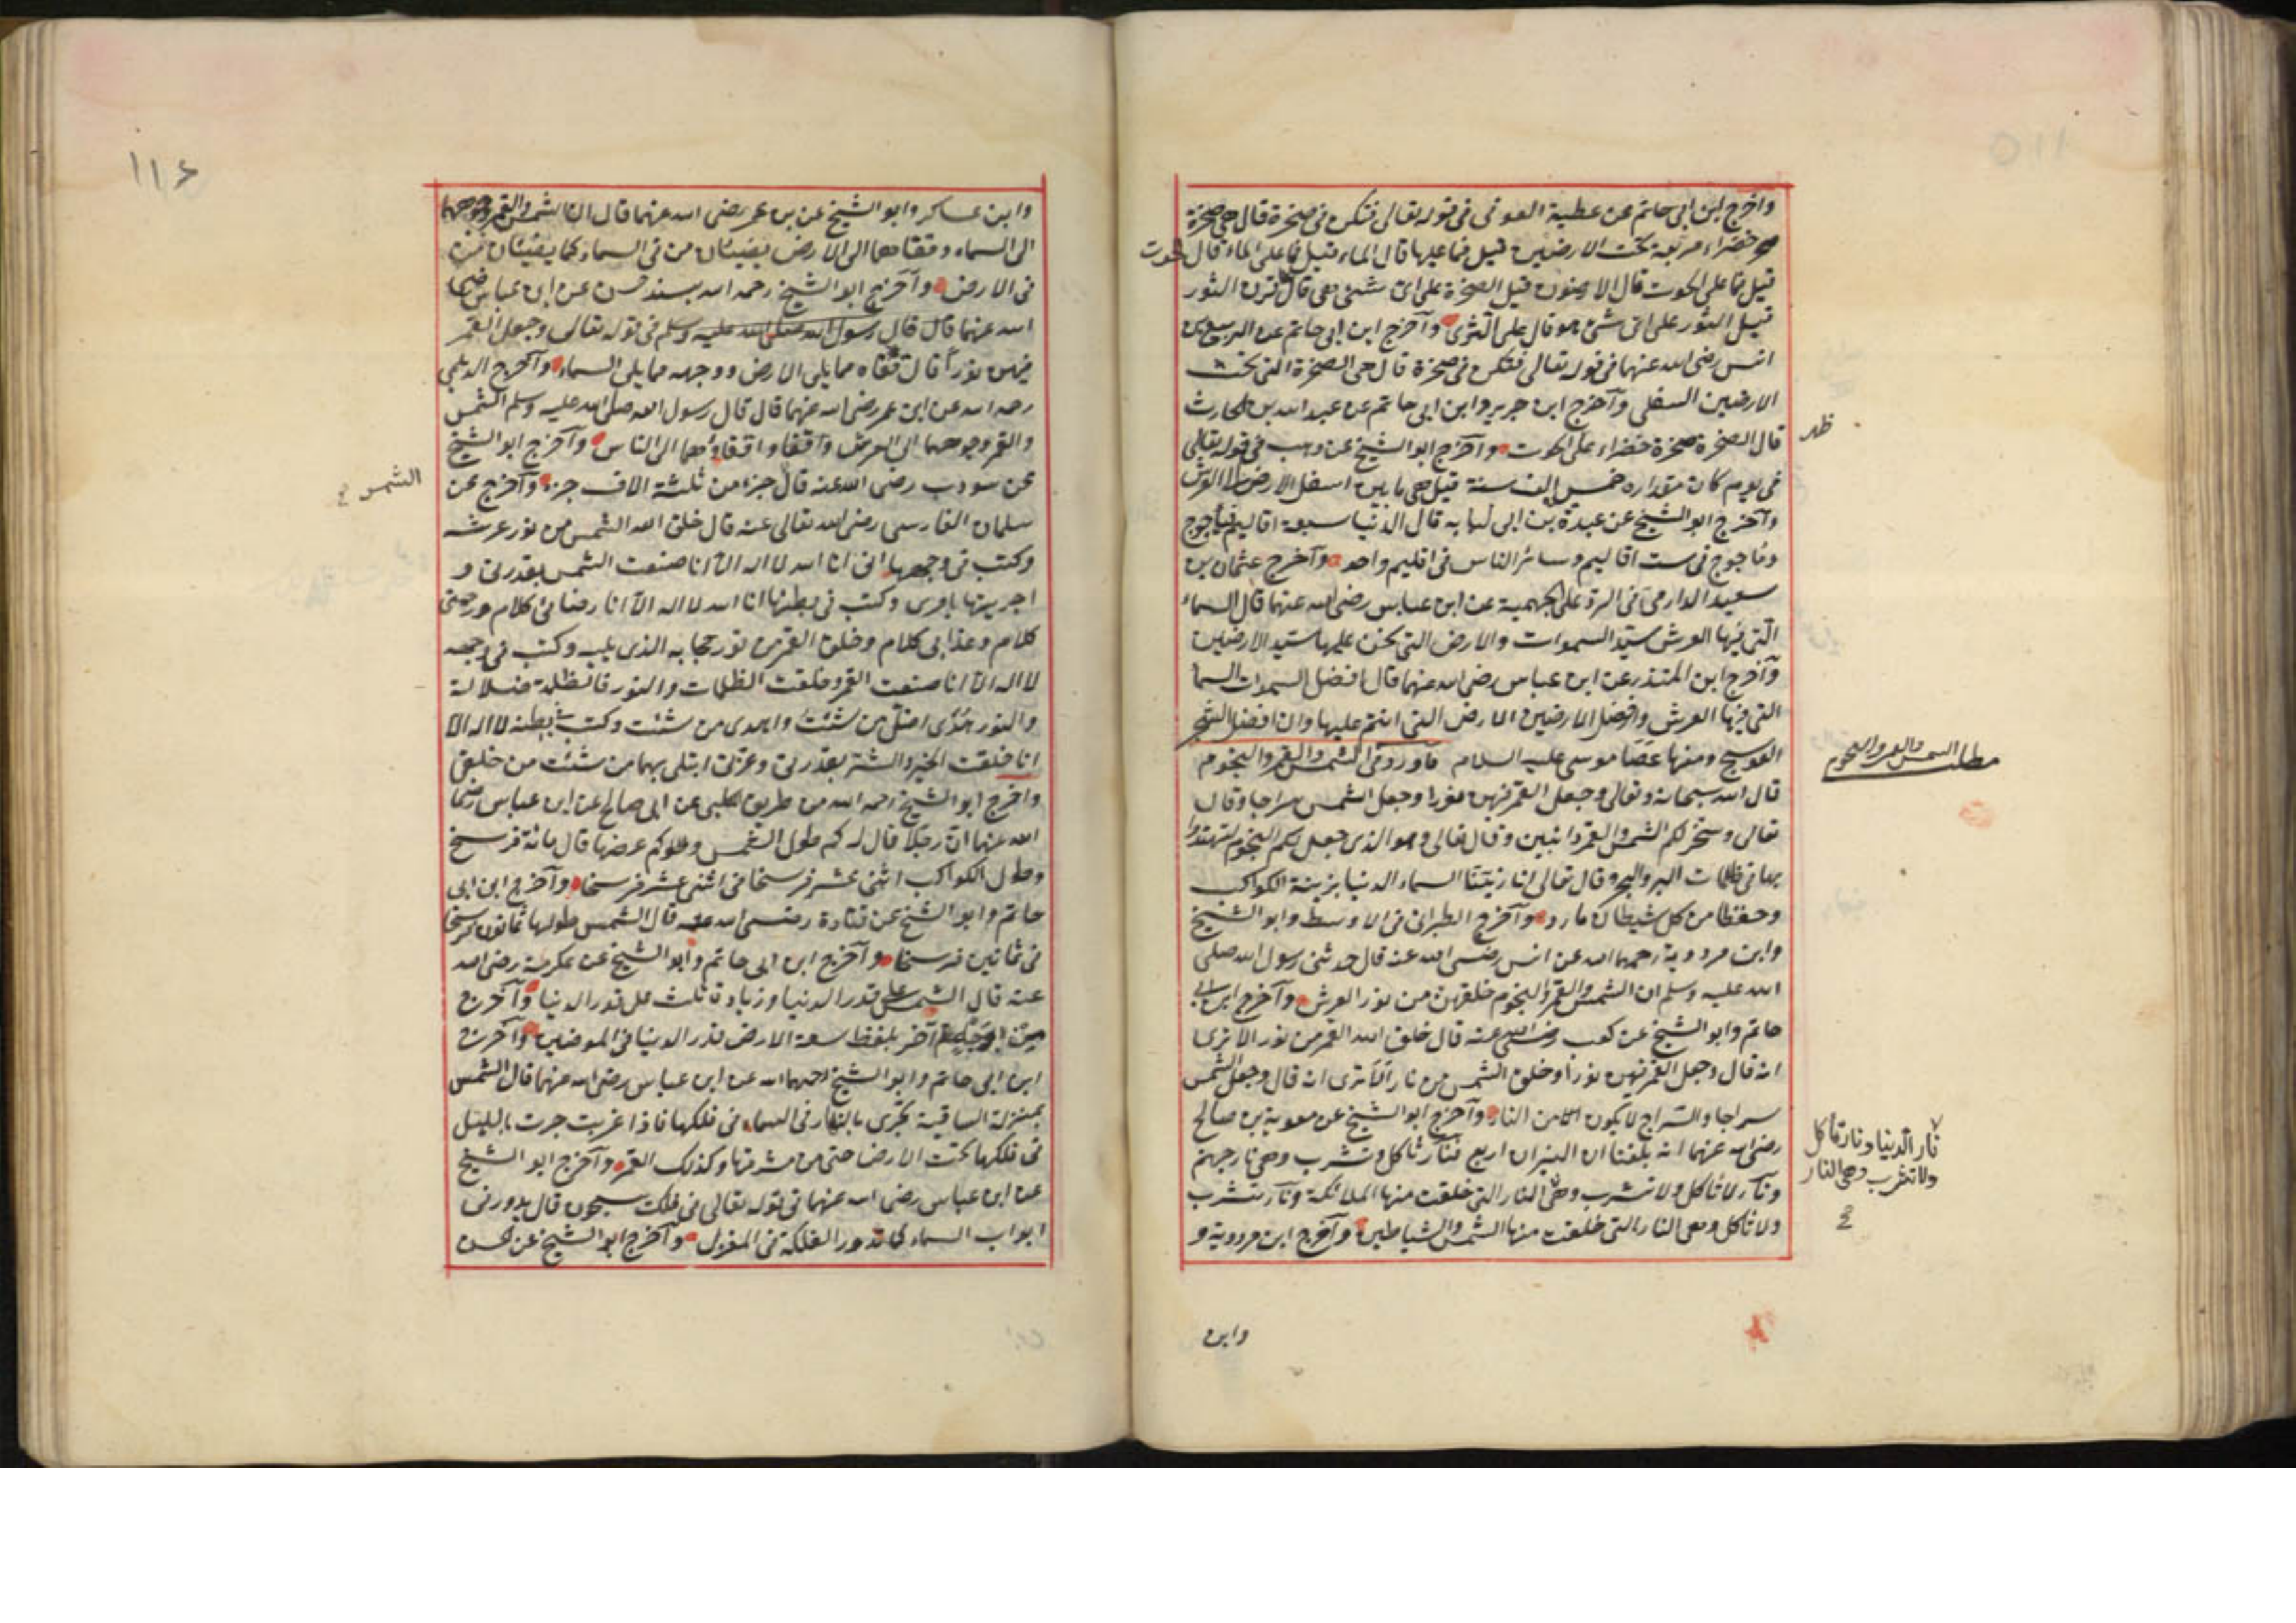 واخرج ابن ابى حاتم عن عطية العوفى فى قوله تعالى فتكن فى صخرة قال هى صخرة
خضراء مربعة تحت الارضين قيل فما عليها قال الماء قيل فما على الماء قال الحوت
قيل فما على الحوت قال الارضون قيل الصخرة على اى شئ هى قال قرن الثور
قيل الثور على اى شئ هو قال على الثرى وآخرج ابن ابى حاتم عن الربيع بن
انس رضى الله عنهما فى قوله تعالى فتكن فى صخرة قال هى الصخرة التى تحت
الارضين السفلى وآخرج ابن جرير وابن ابى حاتم عن عبد الله بن الحارث
قال الصخرة صخرة خضراء على ظهر الحوت وآخرج ابو الشيخ عن وهب فى قوله تعالى
فى يوم كان مقداره خمسين الف سنة قيل هى ما بين اسفل الارض الى العرش
وآخرج ابو الشيخ عن عبدة بن ابى لبابه قال الدنيا سبعة اقاليم فياجوج
وماجوج فى ست اقاليم وسائر الناس فى اقليم واحد وآخرج عثمان بن
سعيد الدارمى فى الرد على الجهمية عن ابن عباس رضى الله عنهما قال السماء
التى فيها العرش سيد السموات والارض التى نحن عليها سيد الارضين
وآخرج ابن المنذر عن ابن عباس رضى الله عنهما قال افضل السموات السما
التى فيها العرش وافضل الارضين الارض التى انتم عليها وان افضل الشجر
العوسج ومنها عصا موسى عليه السلام ما ورد فى الشمس والقمر والنجوم
مطلب الشمس والقمر والنجوم
قال الله سبحانه وتعالى وجعل القمر فيهن نورا وجعل الشمس سراجا وقال
تعالى وسخر لكم الشمس والقمر دائبين وقال تعالى وهو الذى جعل لكم النجوم لتهتدوا
بها فى ظلمات البر والبحر وقال تعالى انا زينا السماء الدنيا بزينة الكواكب
وحفظا من كل شيطان مارد وآخرج الطبرانى فى الاوسط وابو الشيخ
وابن مردوية رحمهما الله عن انس رضى الله عنه قال حدثنى رسول الله صلى
الله عليه وسلم ان الشمس والقمر والنجوم خلقهن من نور العرش وآخرج ابن ابى
حاتم وابو الشيخ عن كعب رضى الله عنه قال خلق الله القمر من نور الا ترى
انه قال وجعل القمر فيهن نورا وخلق الشمس من نار ألا ترى انه قال وجعل الشمس
سراجا والسراج لا يكون الا من النار وآخرج ابو الشيخ عن معوية بن صالح
رضى الله عنهما انه بلغنا ان النيران اربع فنار تاكل وتشرب وهى نار جهنم
ونار لا تاكل ولا تشرب وهى النار التى خلقت منها الملائكة ونار تشرب
نار الدنيا ونار تاكل
ولا تشرب وهى النار
ولا تاكل وهى النار التى خلقت منها الشمس والشياطين وآخرج ابن مردوية و
وابن
١١٦
وابن عساكر وابو الشيخ عن بن عمر رضى الله عنهما قال ان الشمس والقمر وجوههما
الى السماء وقفاهما الى الارض يضيئان من فى السماء كما يضيئان من
فى الارض وآخرج ابو الشيخ رحمه الله بسند حسن عن ابن عباس رضى
الله عنهما قال قال رسول الله صلى الله عليه وسلم فى قوله تعالى وجعل القمر
فيهن نورا قال قفاه مما يلى الارض ووجهه مما يلى السماء وآخرج الديلمى
رحمه الله عن ابن عمر رضى الله عنهما قال قال رسول الله صلى الله عليه وسلم الشمس
والقمر وجوههما الى العرش واقفاوهما الى الناس وآخرج ابو الشيخ
رضى الله عنه قال الشمس جزء من ثلثة الاف جزء وآخرج عن
سلمان الفارسى رضى الله تعالى عنه قال خلق الله الشمس من نور عرشه
وكتب فى وجهها انى انا الله لا اله الا انا صنعت الشمس بقدرتى و
اجريتها بامرى وكتب فى بطنها انا الله لا اله الا انا رضائى كلام ورحمتى
كلام وعذابى كلام وخلق القمر من نور حجابه الذى يليه وكتب فى وجهه
لا اله الا انا صنعت القمر وخلقت الظلمات والنور فالظلمة ضلالة
والنور هدى اضل من شئت واهدى من شئت وكتب فى بطنه لا اله الا
انا خلقت الخير والشر بقدرتى وعزتى ابتلى بهما من شئت من خلقى
واخرج ابو الشيخ رحمه الله من طريق الكلبى عن ابى صالح عن ابن عباس رضى
الله عنهما ان رجلا قال له كم طول الشمس وكم عرضها قال مائة فرسخ
وطول الكواكب اثنى عشر فرسخا فى اثنى عشر فرسخا وآخرج ابن ابى
حاتم وابو الشيخ عن قتادة رضى الله عنه قال الشمس طولها ثمانون فرسخا
فى ثمانين فرسخا وآخرج ابن ابى حاتم وابو الشيخ عن عكرمة رضى الله
عنه قال الشمس على قدر الدنيا وزيادة ثلث على قدر الدنيا وآخرج
آخر بلفظ سعة الارض قدر الدنيا فى الموضعين وآخرج
ابن ابى حاتم وابو الشيخ رحمهما الله عن ابن عباس رضى الله عنهما قال الشمس
بمنزلة الساقية تجرى بالنهار فى السماء فى فلكها فاذا غربت جرت بالليل
فى فلكها تحت الارض حتى من مشرقها وكذلك القمر وآخرج ابو الشيخ
عن ابن عباس رضى الله عنهما فى قوله تعالى فى فلك يسبحون قال يدور فى
ابواب السماء كما تدور الفلكة فى المغزل وآخرج ابو الشيخ عن حسن